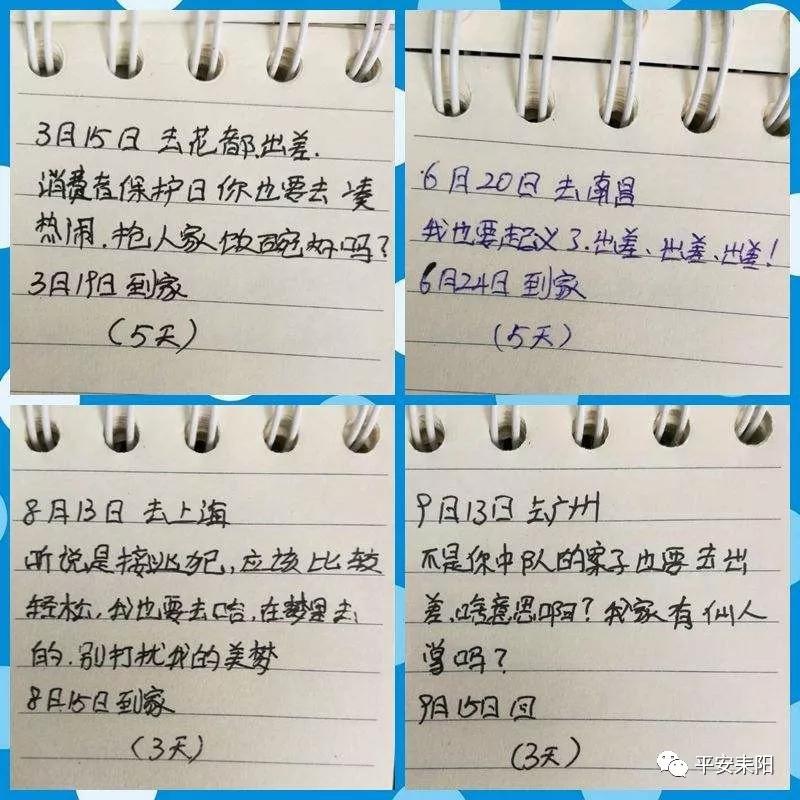 3月15日 去花都出差.
消费者保护日你也要去凑
热闹.抢人家饭碗好吗?
3月19日到家
(5天)
6月20日 去南昌
我也要起义了.出差、出差、出差!
6月24日 到家
(5天)
8月13日 去上海
听说是接逃犯,应该比较
轻松,我也要去哈,在梦里去
的.别打扰我的美梦
8月15日到家
(3天)
9月13日 去广州
不是你中队的案子也要去出
差,啥意思啊?我家有仙人
掌吗?
9月15日回
(3天)
平安耒阳